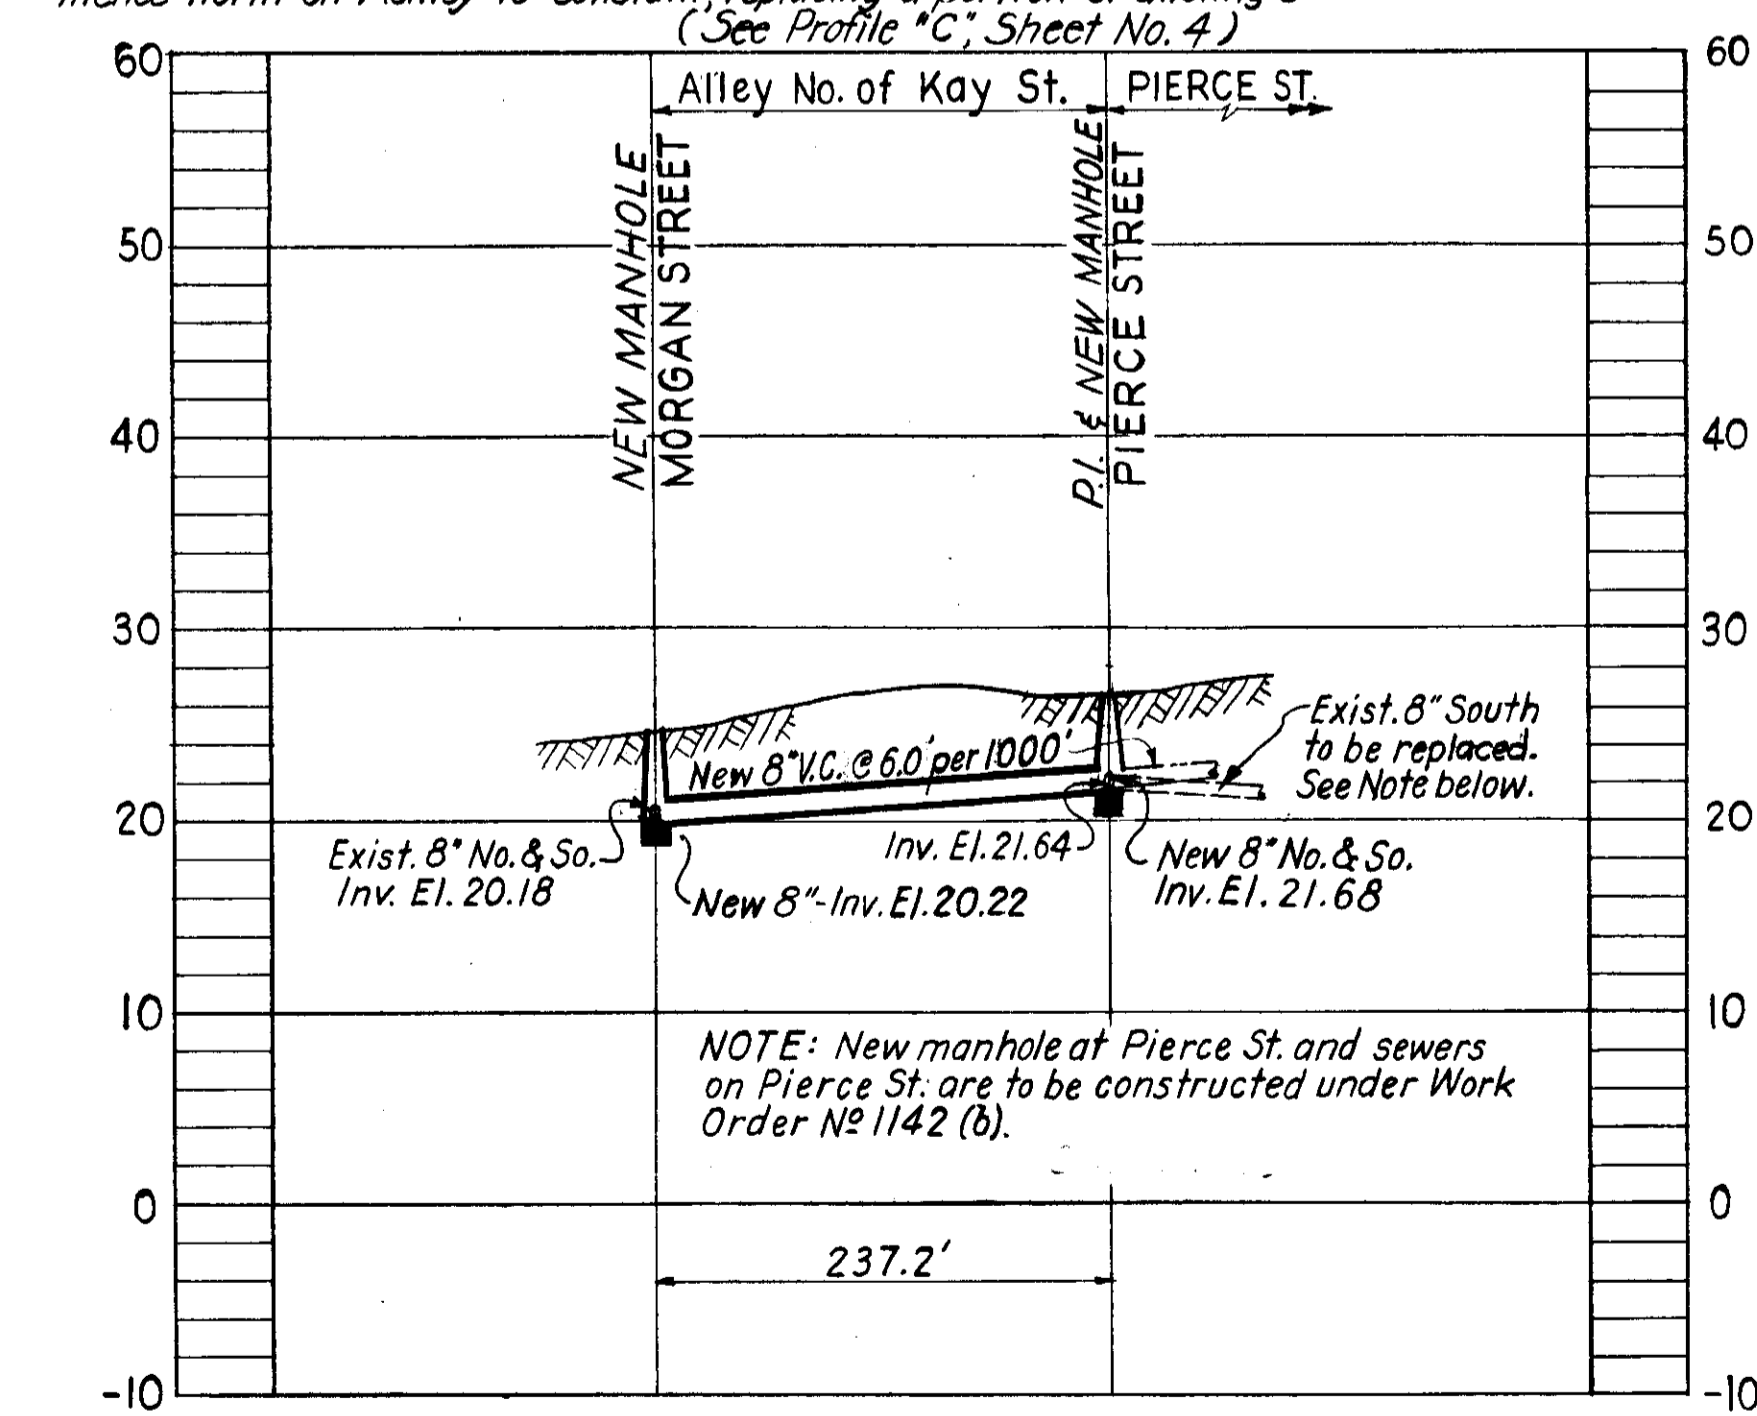 (See Profile "C", Sheet No. 4)
60
60
Alley No. of Kay St.
PIERCE ST.
NEW MANHOLE
MORGAN STREET
P.I. & NEW MANHOLE
PIERCE STREET
50
50
40
40
30
30
Exist. 8" South
to be replaced.
See Note below.
New 8" V.C. @ 6.0' per 1000'
20
20
Exist. 8" No. & So.
Inv. El. 20.18
New 8"-Inv. El. 20.22
Inv. El. 21.64
New 8" No. & So.
Inv. El. 21.68
10
10
NOTE: New manhole at Pierce St. and sewers
on Pierce St. are to be constructed under Work
Order Nº 1142 (b).
0
0
237.2'
-10
-10